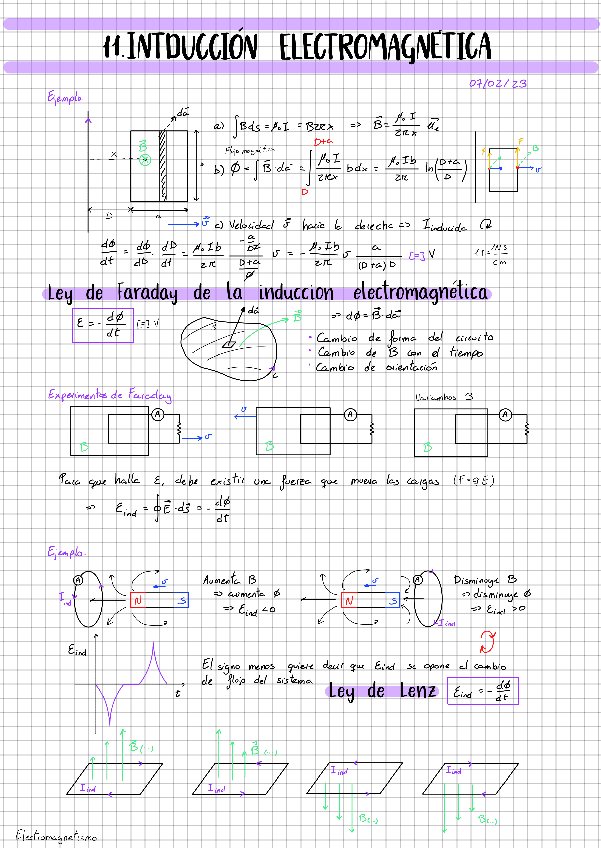 11. INTDUCCIÓN ELECTROMAGNÉTICA
07/02/23
Ejemplo
da⃗
a) ∫Bds = μ₀I = B2πx ⇒ B⃗ = μ₀I/2πx
Flujo magnético
b) Φ = ∫B⃗·da⃗ = ∫ μ₀I/2πx b dx = μ₀Ib/2π ln(D+a/D)
D+a
D
X
B⃗
D
a
F
F
B
v
v⃗
c) Velocidad v⃗ hacia la derecha ⇒ Iinducida
dΦ/dt = dΦ/dD · dD/dt = μ₀Ib/2π v = - μ₀Ib/2π v a/(D+a)D [=] V
Ley de Faraday de la induccion electromagnética
ε = - dΦ/dt [=] V
da⃗
B⃗
S
c
⇒ dΦ = B⃗·da⃗
· Cambio de forma del circuito
· Cambio de B con el tiempo
· Cambio de orientación
Experimentos de Faraday
Variamos B
A
B
v
v
A
B
A
B
Para que halla ε, debe existir una fuerza que mueva las cargas (F=qE)
⇒ εind = ∮E⃗·ds⃗ = - dΦ/dt
Ejemplo.
A
Iind
v
N S
Aumenta B
⇒ aumenta Φ
⇒ εind <0
v
N S
A
Iind
Disminuye B
⇒ disminuye Φ
⇒ εind >0
Eind
t
El signo menos quiere decir que Eind se opone al cambio
de flujo del sistema
Ley de Lenz
εind = - dΦ/dt
B⃗(↑)
Iind
Iind
Iind
B(↓)
Iind
B(↓)
Electromagnetismo